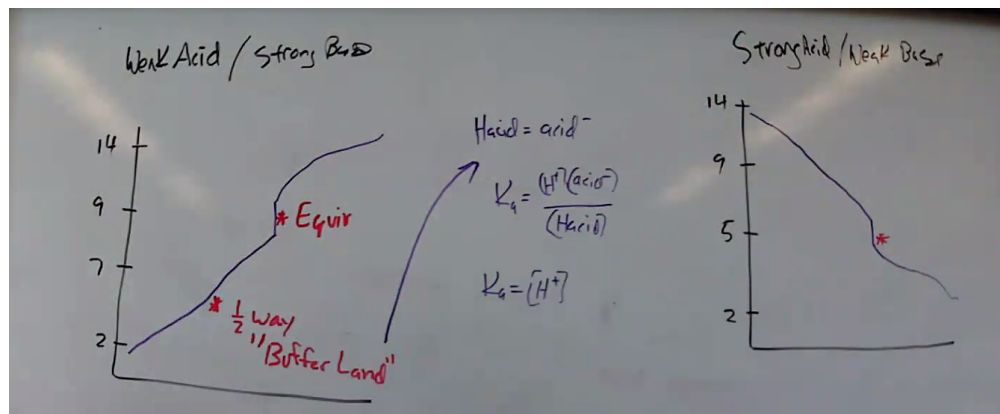 Weak Acid / Strong Base
14
9
* Equiv
7
* 1/2 way
"Buffer Land"
2
Hacid = acid⁻
Ka = (H⁺)(acid⁻)
(Hacid)
Ka = [H⁺]
Strong Acid / Weak Base
14
9
5
*
2